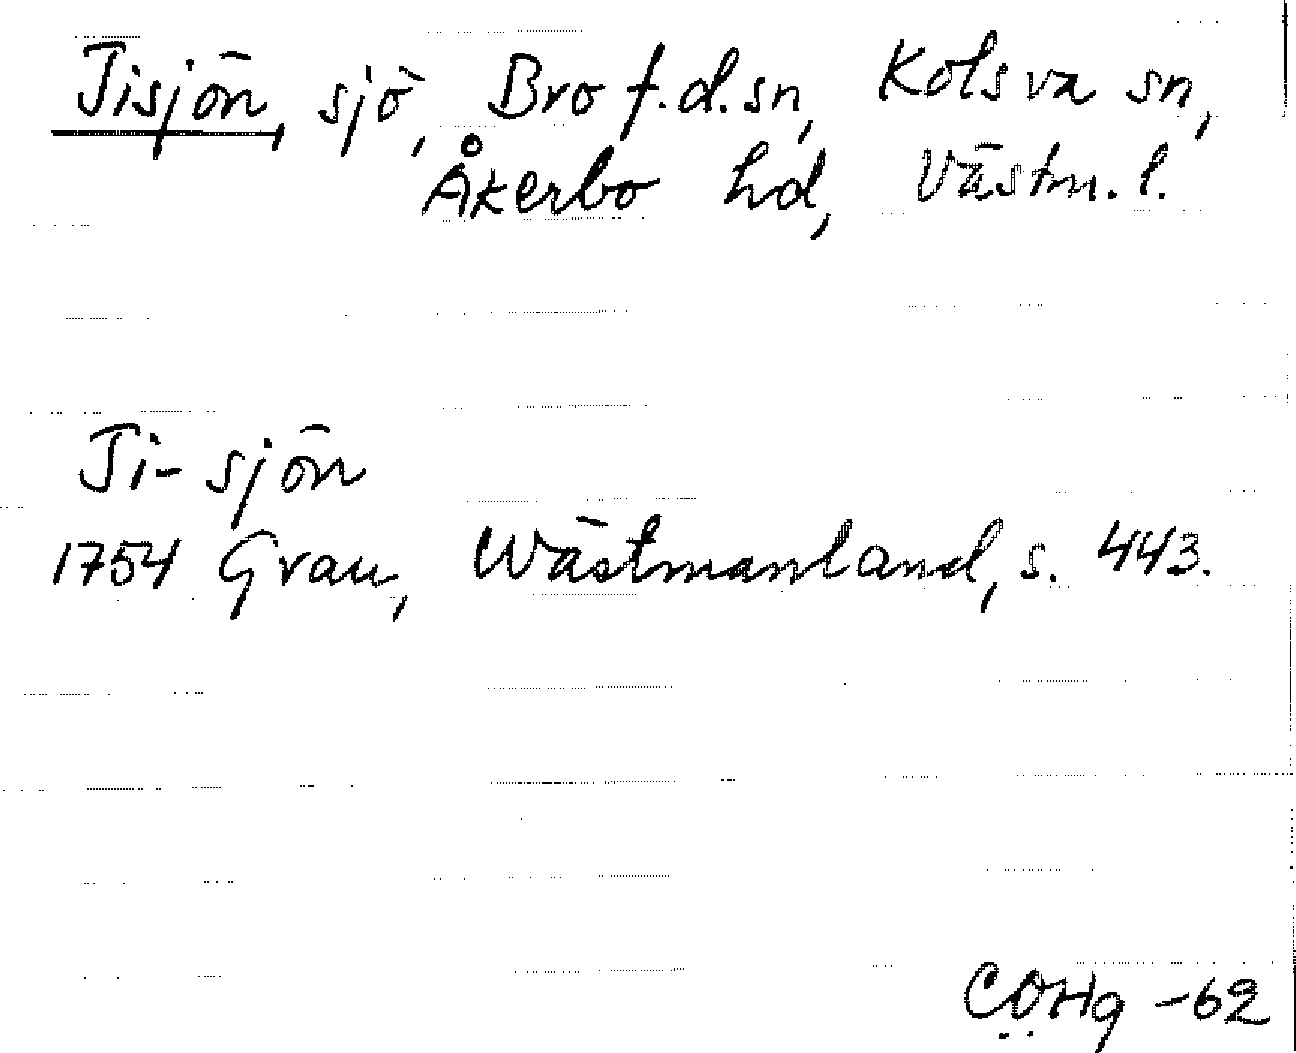 Tisjön, sjö, Bro f.d. sn, Kolsva sn,
Åkerbo hd, Västm. l.
Ti-sjön
1754 Grau, Wästmanland, s. 443.
COHg -62